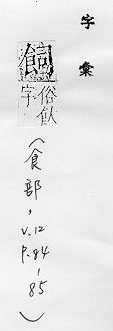 字彙
飼俗飤
字
(食部,
V.12
P.84-
85)